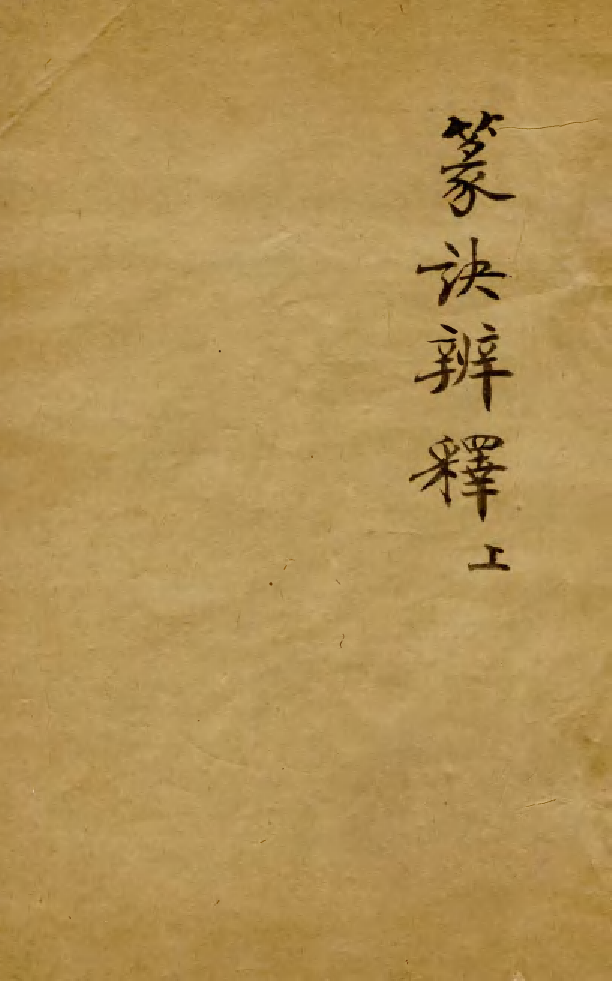 篆訣辨釋 上